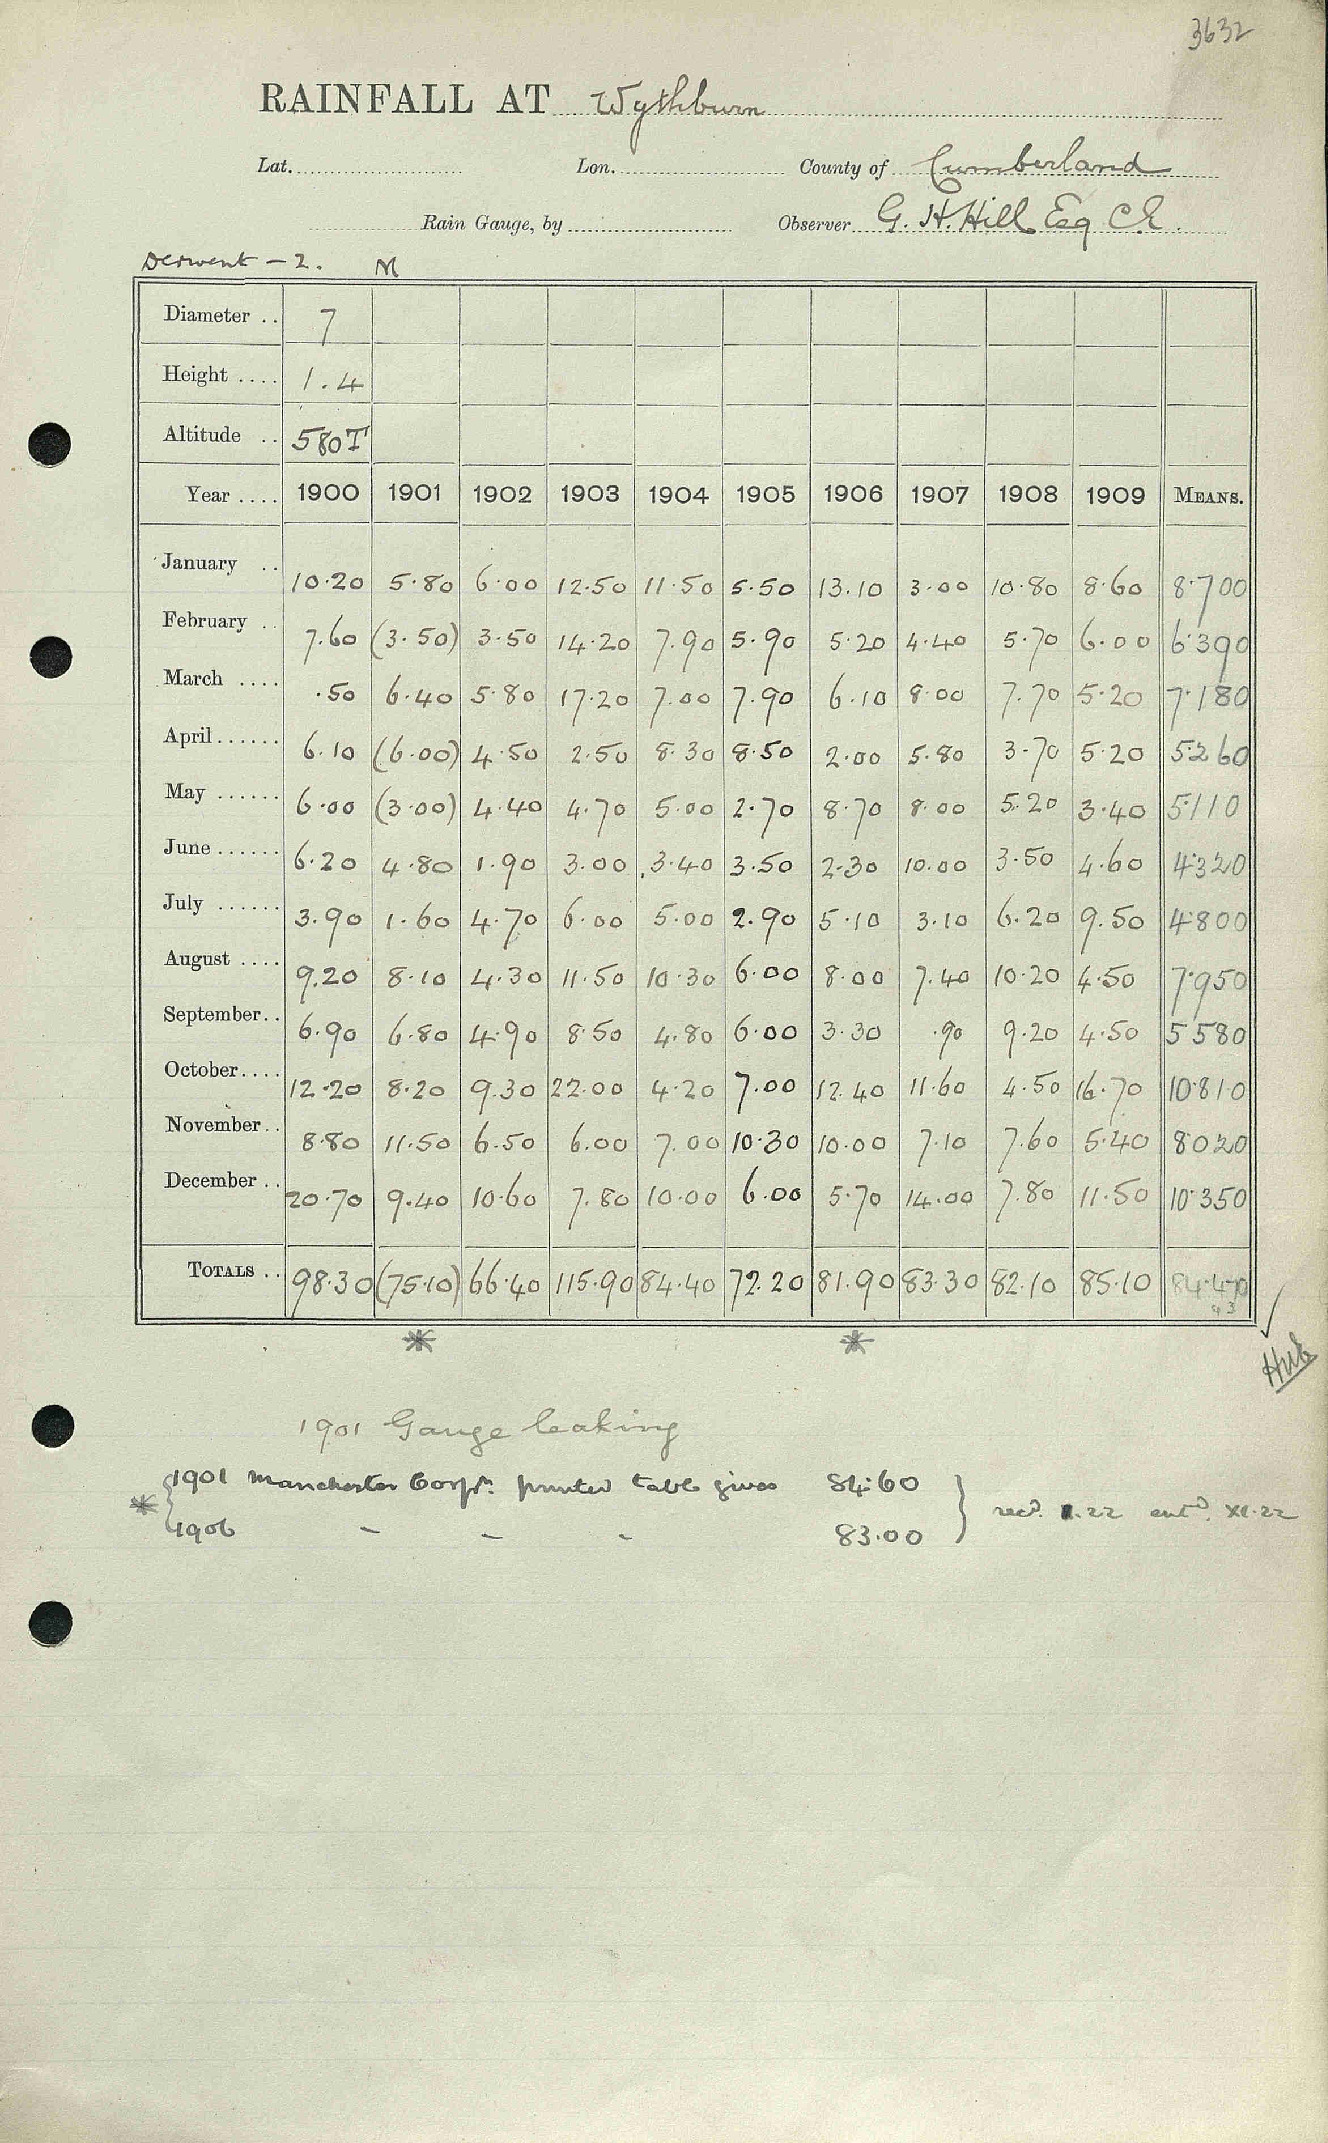 3632
RAINFALL AT Wythburn
Lat. Lon. County of Cumberland
Rain Gauge, by Observer G. H. Hill Esq C.E.
Derwent - 2. M
Diameter .. 7
Height .... 1.4
Altitude .. 580T
Year .... 1900 1901 1902 1903 1904 1905 1906 1907 1908 1909 MEANS.
January .. 10.20 5.80 6.00 12.50 11.50 5.50 13.10 3.00 10.80 8.60 8.700
February .. 7.60 (3.50) 3.50 14.20 7.90 5.90 5.20 4.40 5.70 6.00 6.390
March .... .50 6.40 5.80 17.20 7.00 7.90 6.10 8.00 7.70 5.20 7.180
April...... 6.10 (6.00) 4.50 2.50 8.30 8.50 2.00 5.80 3.70 5.20 5.260
May ...... 6.00 (3.00) 4.40 4.70 5.00 2.70 8.70 8.00 5.20 3.40 5.110
June...... 6.20 4.80 1.90 3.00 3.40 3.50 2.30 10.00 3.50 4.60 4.320
July ...... 3.90 1.60 4.70 6.00 5.00 2.90 5.10 3.10 6.20 9.50 4.800
August .... 9.20 8.10 4.30 11.50 10.30 6.00 8.00 7.40 10.20 4.50 7.950
September.. 6.90 6.80 4.90 8.50 4.80 6.00 3.30 .90 9.20 4.50 5 580
October.... 12.20 8.20 9.30 22.00 4.20 7.00 12.40 11.60 4.50 16.70 10.810
November.. 8.80 11.50 6.50 6.00 7.00 10.30 10.00 7.10 7.60 5.40 8020
December .. 20.70 9.40 10.60 7.80 10.00 6.00 5.70 14.00 7.80 11.50 10.350
TOTALS .. 98.30 (75.10) 66.40 115.90 84.40 72.20 81.90 83.30 82.10 85.10 84.470
43
* *
1901 Gauge leaking
* 1901 Manchester Corpn. printed table gives 84.60
1906 - - - 83.00
recd. .22 entd. XI.22